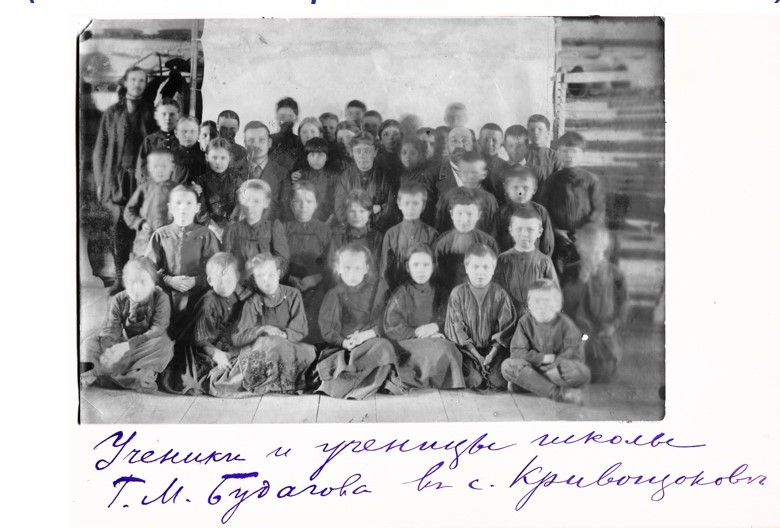 Ученики и ученицы школы
Г. М. Будагова в с. Кривощоковы